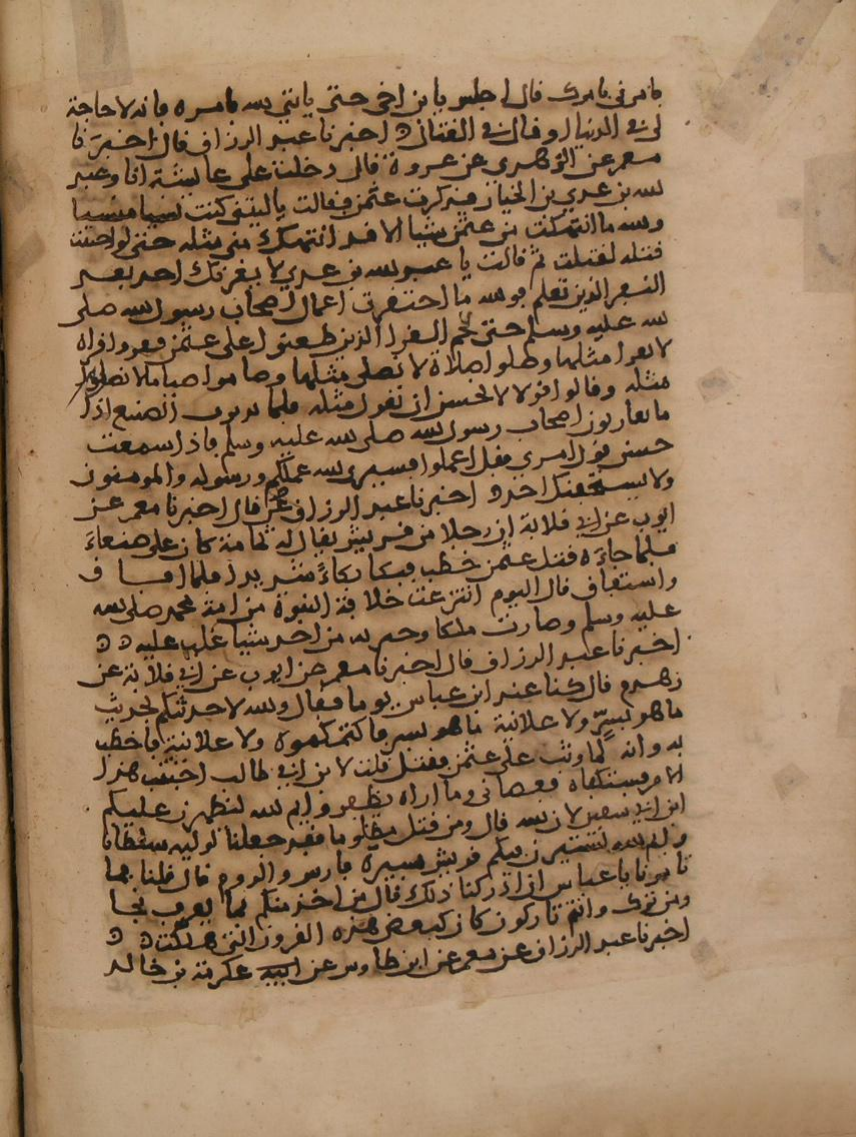 يامرني بامرك قال اجلس يا بن اخي حتى ياتي الله بامره فانه لا حاجة
لي في الدنيا او قال في القتال ه اخبرنا عبد الرزاق قال اخبرنا
معمر عن الزهري عن عروة قال دخلت على عايشة انا وعبيد
الله بن عدي بن الخيار فذكرت عثمن فقالت يا ليتني كنت نسيا منسيا
والله ما انتهكت من عثمن شيا الا قد انتهك مني مثله حتى لو احببت
قتله لقتلت ثم قالت يا عبيد الله بن عدي لا يغرنك احد بعد
النفر الذين تعلم فو الله ما احتقرت اعمال اصحاب رسول الله صلى
الله عليه وسلم حتى نجم النفر الذين طعنوا على عثمن فقروا قراة
لا يقرا مثلها وصلوا صلاة لا يصلى مثلها وصاموا صياما لا
مثله وقالوا قولا لا نحسن ان نقول مثله فلما تدبرت الصنيع اذا
ما يقاربون اصحاب رسول الله صلى الله عليه وسلم فاذا سمعت
حسن قول امري فقل اعملوا فسيرى الله عملكم ورسوله والمومنون
ولا يستخفنك احد ه اخبرنا عبد الرزاق قال اخبرنا معمر عن
ايوب عن ابي قلابة ان رجلا من قريش يقال له ثمامة كان على صنعاء
فلما جاءه قتل عثمن خطب فبكا بكاء شديدا فلما افاق
واستفاق قال اليوم انتزعت خلافة النبوة من امة محمد صلى الله
عليه وسلم وصارت ملكا وجبرية من اخذ شيا غلب عليه ه ه
اخبرنا عبد الرزاق قال اخبرنا معمر عن ايوب عن ابي قلابة عن
زهدم قال كنا عند ابن عباس يوما فقال والله لاحدثنكم بحديث
ما هو بسر ولا علانية ما هو بسر فاكتمكموه ولا علانية فاخطب
به وانه لما وثب على عثمن فقتل قلت لابن ابي طالب اجتنب هذا
الامر فستكفاه فعصاني وما اراه يظفر وايم الله ليظهرن عليكم
ابن ابي سفين لان الله قال ومن قتل مظلوما فقد جعلنا لوليه سلطانا
وايم الله لتسيرن فيكم قريش بسيرة فارس والروم قال قلنا فما
تامرنا يابا عباس ان ادركنا ذلك قال من اخذ منكم بما يعرف نجا
ومن ترك وانتم تاركون كان كبعض هذه القرون التي هلكت ه ه
اخبرنا عبد الرزاق عن معمر عن ابن طاوس عن ابيه عكرمة بن خالد